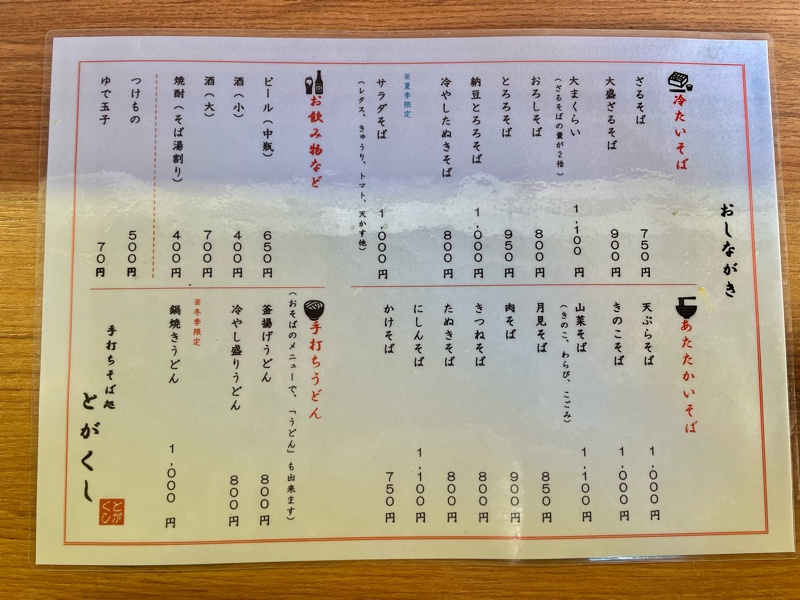 おしながき
冷たいそば
ざるそば 750円
大盛ざるそば 900円
大まくらい 1,100円
(ざるそばの量が2倍)
おろしそば 800円
とろろそば 950円
納豆とろろそば 1,000円
冷やしたぬきそば 800円
※夏季限定
サラダそば 1,000円
(レタス、きゅうり、トマト、天かす他)
お飲み物など
ビール(中瓶) 650円
酒(小) 400円
酒(大) 700円
焼酎(そば湯割り) 400円
つけもの 500円
ゆで玉子 70円
あたたかいそば
天ぷらそば 1,000円
きのこそば 1,000円
山菜そば 1,100円
(きのこ、わらび、こごみ)
月見そば 850円
肉そば 900円
きつねそば 800円
たぬきそば 800円
にしんそば 1,100円
かけそば 750円
手打ちうどん
(おそばのメニューで、「うどん」も出来ます)
釜揚げうどん 800円
冷やし盛りうどん 800円
※冬季限定
鍋焼きうどん 1,000円
手打ちそば処
とがくし
とがくし